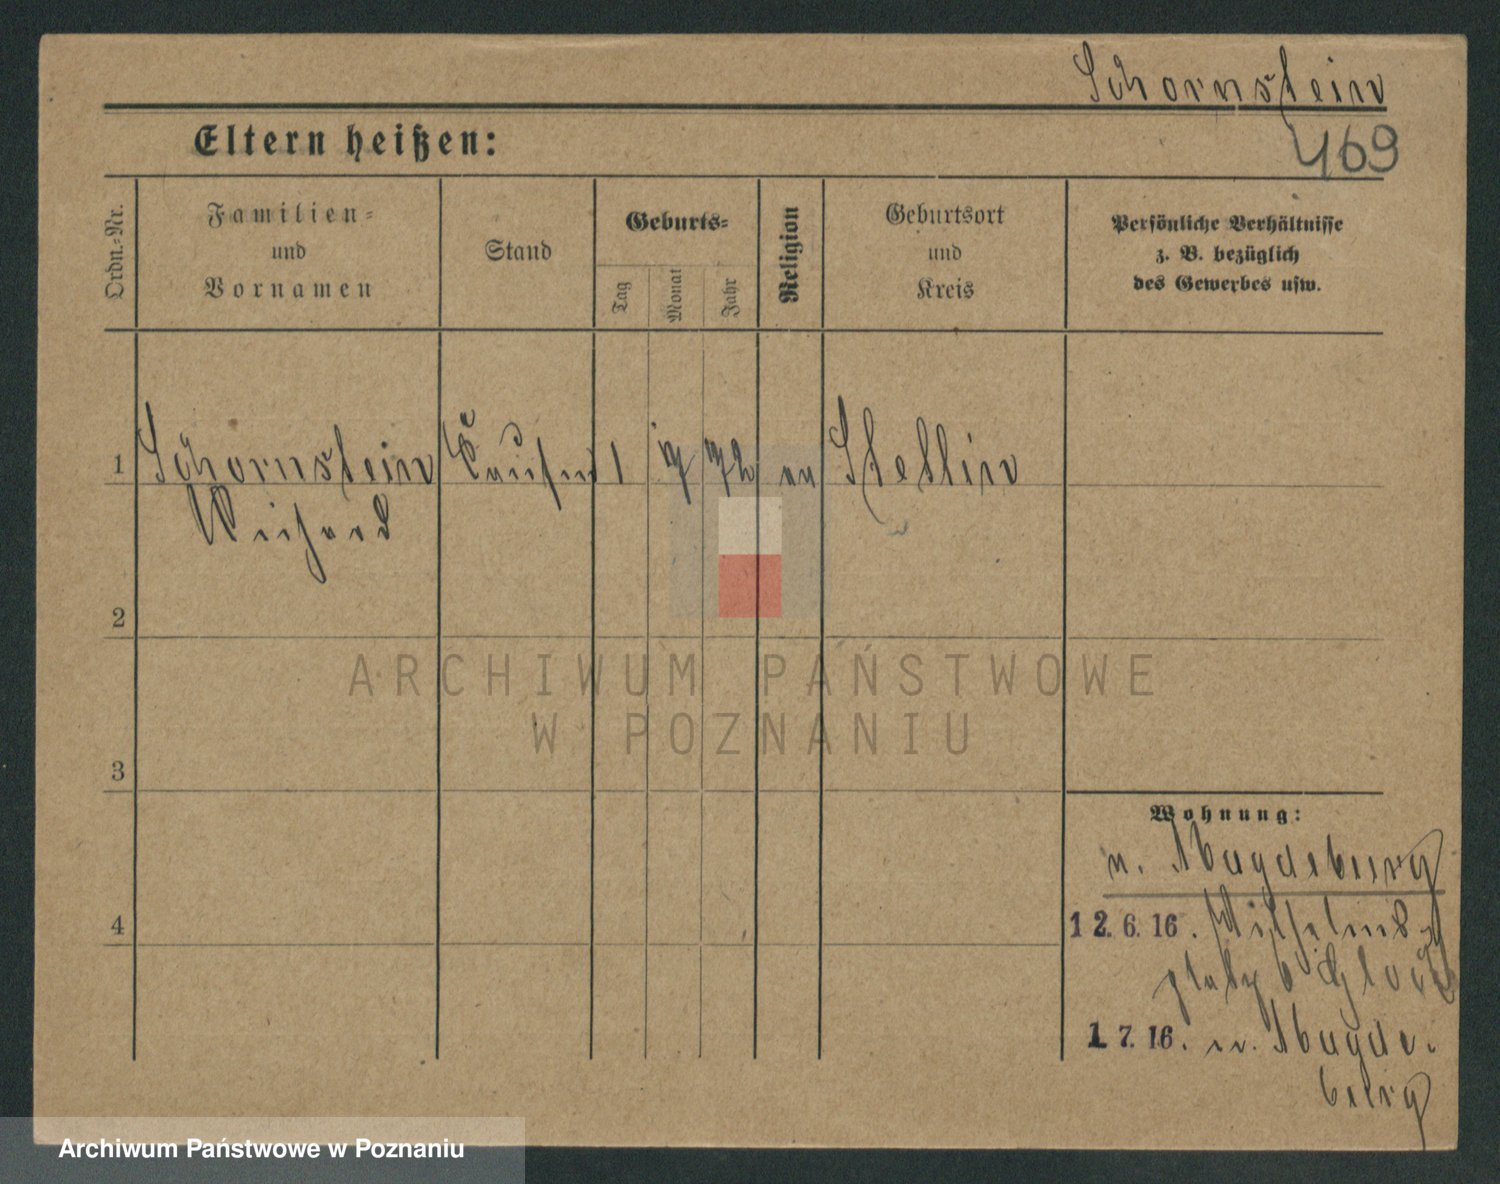 Schornstein
469
Eltern heißen:
Ordn.-Nr.
Familien-
und
Vornamen
Stand
Geburts-
Tag
Monat
Jahr
Religion
Geburtsort
und
Kreis
Persönliche Verhältnisse
z. B. bezüglich
des Gewerbes usw.
1 Schornstein 1 7 72 Stettin
Richard
2
ARCHIWUM PAŃSTWOWE
W POZNANIU
3
Wohnung:
n. Magdeburg
4
12.6.16. Wilhelms-
platz 6
1.7.16. n. Magde-
burg
Archiwum Państwowe w Poznaniu